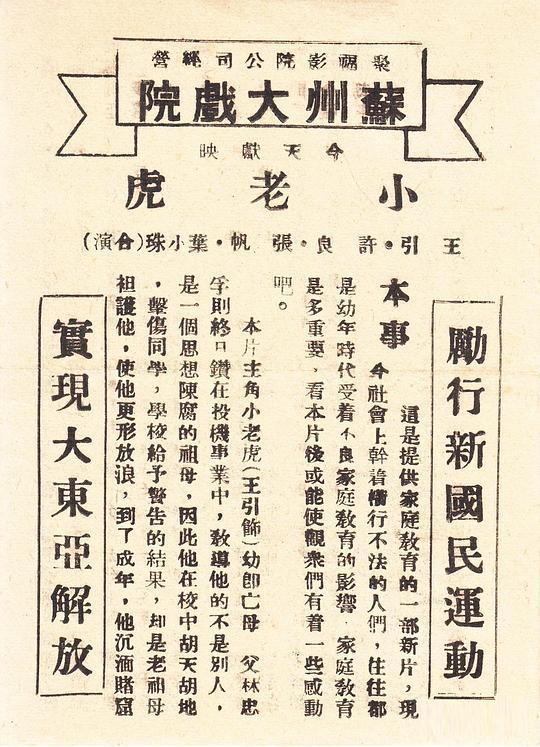 聚福影院公司經營
蘇州大戲院
今天獻映
小老虎
王引・許良・張帆・葉小珠(合演)
勵行新國民運動
本事
這是提供家庭敎育的一部新片,現
今社會上幹着橫行不法的人們,往往都
是幼年時代受着不良家庭敎育的影響.家庭敎育
是多重要,看本片後或能使觀衆們有着一些感動
吧。
本片主角小老虎(王引飾)幼卽亡母 父林忠
孚則終日鑽在投機事業中,敎導他的不是別人,
是一個思想陳腐的祖母,因此他在校中胡天胡地
,擊傷同學,學校給予警告的結果,却是老祖母
袒護他,使他更形放浪,到了成年,他沉湎賭窟
實現大東亞解放